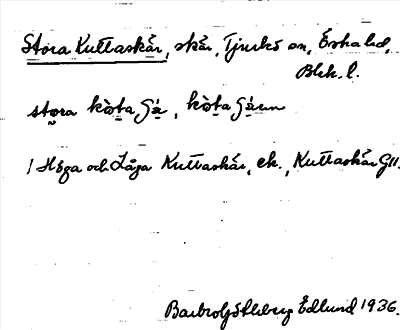 Stora Kuttaskär, skär, Tjurkö sn, Östra hd,
Blek. l.
stora kòtaʃä, kòtaʃären
/ Höga och Låga Kuttaskär, ek., Kuttaskär GII.
Barbro Götherberg Edlund 1936.